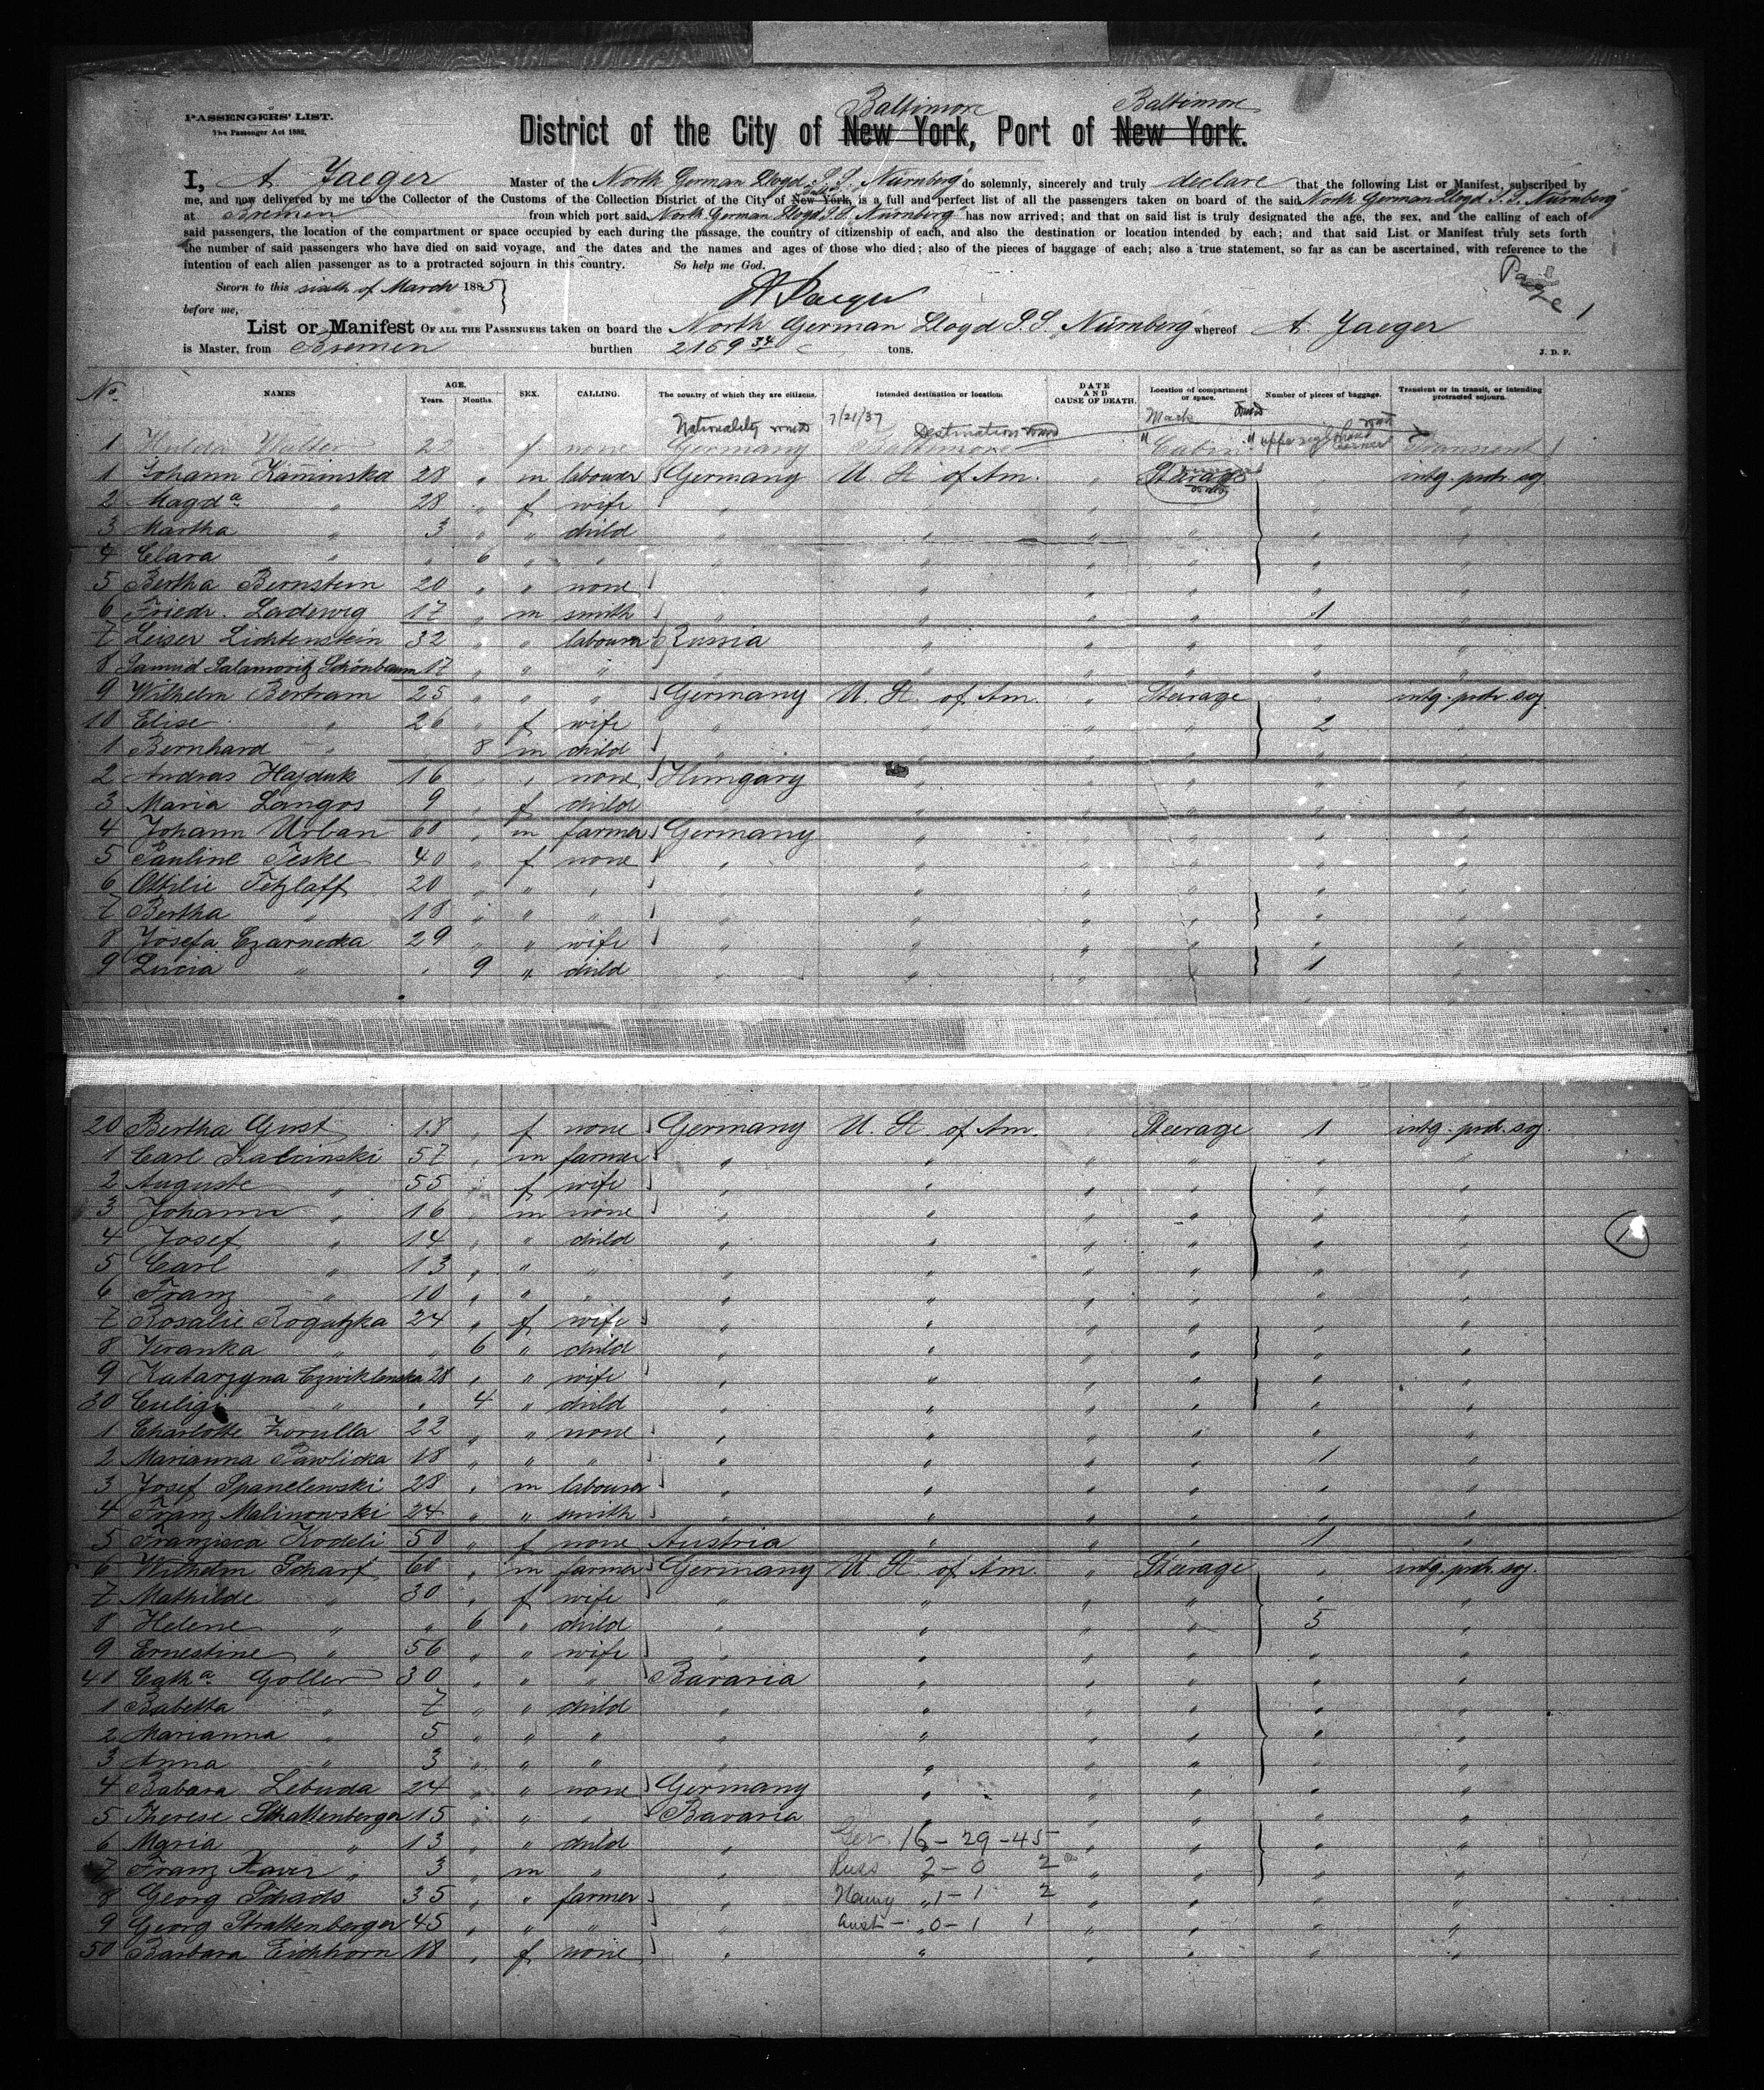 PASSENGERS' LIST.
The Passenger Act 1882.
Baltimore Baltimore
District of the City of New York, Port of New York.
I, A. Jaeger Master of the North German Lloyd S.S. "Nürnberg" do solemnly, sincerely and truly declare that the following List or Manifest, subscribed by
me, and now delivered by me to the Collector of the Customs of the Collection District of the City of New York, is a full and perfect list of all the passengers taken on board of the said North German Lloyd S.S. Nürnberg"
at Bremen from which port said North German Lloyd S.S. Nürnberg" has now arrived; and that on said list is truly designated the age, the sex, and the calling of each of
said passengers, the location of the compartment or space occupied by each during the passage, the country of citizenship of each, and also the destination or location intended by each; and that said List or Manifest truly sets forth
the number of said passengers who have died on said voyage, and the dates and the names and ages of those who died; also of the pieces of baggage of each; also a true statement, so far as can be ascertained, with reference to the
intention of each alien passenger as to a protracted sojourn in this country. So help me God.
Page 1
Sworn to this sixth of March 1885
A. Jaeger
before me,
List or Manifest OF ALL THE PASSENGERS taken on board the North German Lloyd S.S. Nürnberg" whereof A. Jaeger
is Master, from Bremen burthen 2169 34 tons.
J. D. P.
No. NAMES AGE. Years. Months. SEX. CALLING. The country of which they are citizens. Intended destination or location. DATE AND CAUSE OF DEATH. Location of compartment or space. Number of pieces of baggage. Transient or in transit, or intending protracted sojourn.
Nationality 7/21/37 Destination Mark
1 Hulda Walter 22 f none Germany Baltimore Cabin upper right hand corner Transient
1 Johann Kaminska 28 " m labourer Germany U. St. of Am. " Steerage " intg. protr. soj.
2 Magda " 28 " f wife " " " " "
3 Martha " 3 " " child " " " " " "
4 Clara " " 6 " " " " " " " "
5 Bertha Bernstein 20 " " none " " " " " "
6 Friedr. Ladewig 17 " m smith " " " " 1 "
7 Leiser Lichtenstein 32 " " labourer Russia " " " " "
8 Samuel Salamovitz Schönbaum 17 " " " " " " " "
9 Wilhelm Bertram 25 " " " Germany U. St. of Am. " Steerage " intg. protr. soj.
10 Elise " 26 " f wife " " " " 2 "
1 Bernhard " 8 m child " " " " " "
2 Andras Hajduk 16 " " none Hungary " " " " "
3 Maria Langos 9 " f child " " " " "
4 Johann Urban 60 " m farmer Germany " " " " "
5 Pauline Teske 40 " f none " " " " " "
6 Ottilie Tetzlaff 20 " " " " " " " " "
7 Bertha " 18 " " " " " " " " "
8 Josefa Czarnecka 29 " " wife " " " " " "
9 Lucia " " 9 " child " " " " 1 "
20 Bertha Gust 18 " f none Germany U. St. of Am. Steerage 1 intg. protr. soj.
1 Carl Kalcinski 57 " m farmer " " " " "
2 Auguste " 55 " f wife " " " " "
3 Johann " 16 " m none " " " " "
4 Josef " 14 " " child " " " " "
1
5 Carl " 13 " " " " " " " "
6 Franz " 10 " " " " " " " "
7 Rosalie Rogatzka 24 " f wife " " " " "
8 Veranka " " 6 " child " " " " "
9 Katarzyna Czwiklenska 28 " " wife " " " " "
30 " " 4 " child " " " " "
1 Charlotte Zorulla 22 " " none " " " " "
2 Marianna Pawlicka 18 " " " " " " 1 "
3 Josef Spanelewski 28 " m labourer " " " " "
4 Franz Malinowski 24 " " smith " " " " "
5 Franzisca Kodeli 50 " f none Austria " " 1 "
6 Wilhelm Scharf 60 " m farmer Germany U. St. of Am. " Steerage " intg. protr. soj.
7 Mathilde " 30 " f wife " " " " " "
8 Helene " " 6 " child " " " " 5 "
9 Ernestine " 56 " " wife " " " " "
40 Catha. Goller 30 " " " Bavaria " " " " "
1 Babetta " 7 " " child " " " " " "
2 Marianna " 5 " " " " " " " " "
3 Anna " 3 " " " " " " " " "
4 Babara Lebuda 24 " " none Germany " " " " "
5 Therese Schattenberger 15 " " " Bavaria " " " " "
6 Maria " 13 " " child " Ger. 16 - 29 - 45 " " " "
7 Franz Xaver " 3 " m " " Russ 2 - 0 2 " " " "
8 Georg Schads 35 " " farmer " Hung 1 - 1 2 " " " "
9 Georg Strattenberger 45 " " " " Aust - 0 - 1 1 " " " "
50 Barbara Eichhorn 18 " f none " " " " " "